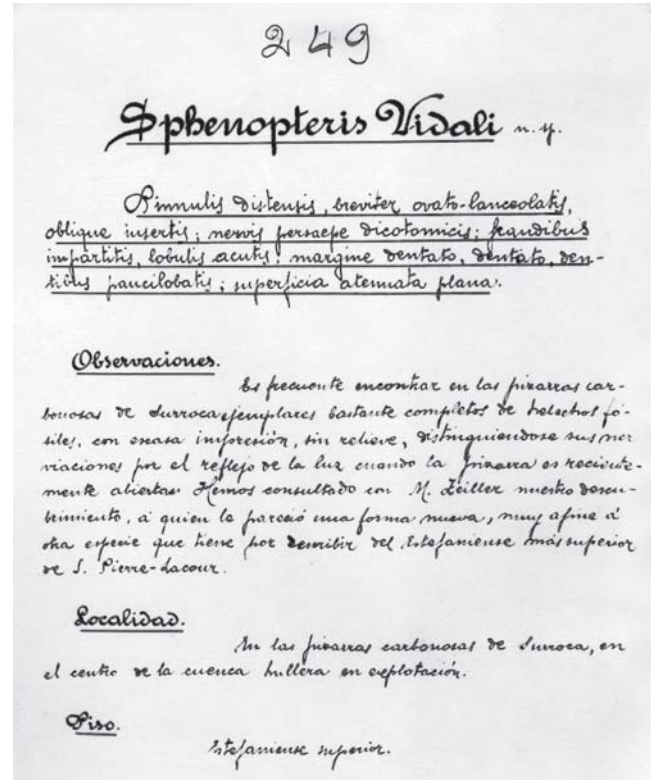 249
Sphenopteris Vidali n. sp.
Pinnulis distensis, breviter ovato-lanceolatis,
oblique insertis; nervis persaepe dicotomicis; frandibus
impartitis, lobulis acutis; margine dentato, dentato, den-
tibus paucilobatis; superficia atenuata plana.
Observaciones.
Es frecuente encontrar en las pizarras car-
bonosas de Surroca ejemplares bastante completos de helechos fó-
siles, con escasa impresión, sin relieve, distinguiendose sus ner
viaciones por el reflejo de la luz cuando la pizarra es reciente-
mente abierta. Hemos consultado con M. Zeiller nuestro descu-
brimiento, á quien le pareció una forma nueva, muy afine á
otra especie que tiene por describir del Estefaniense más superior
de S. Pierre-Lacour.
Localidad.
En las pizarras carbonosas de Surroca, en
el centro de la cuenca hullera en explotación.
Piso.
Estefaniense superior.